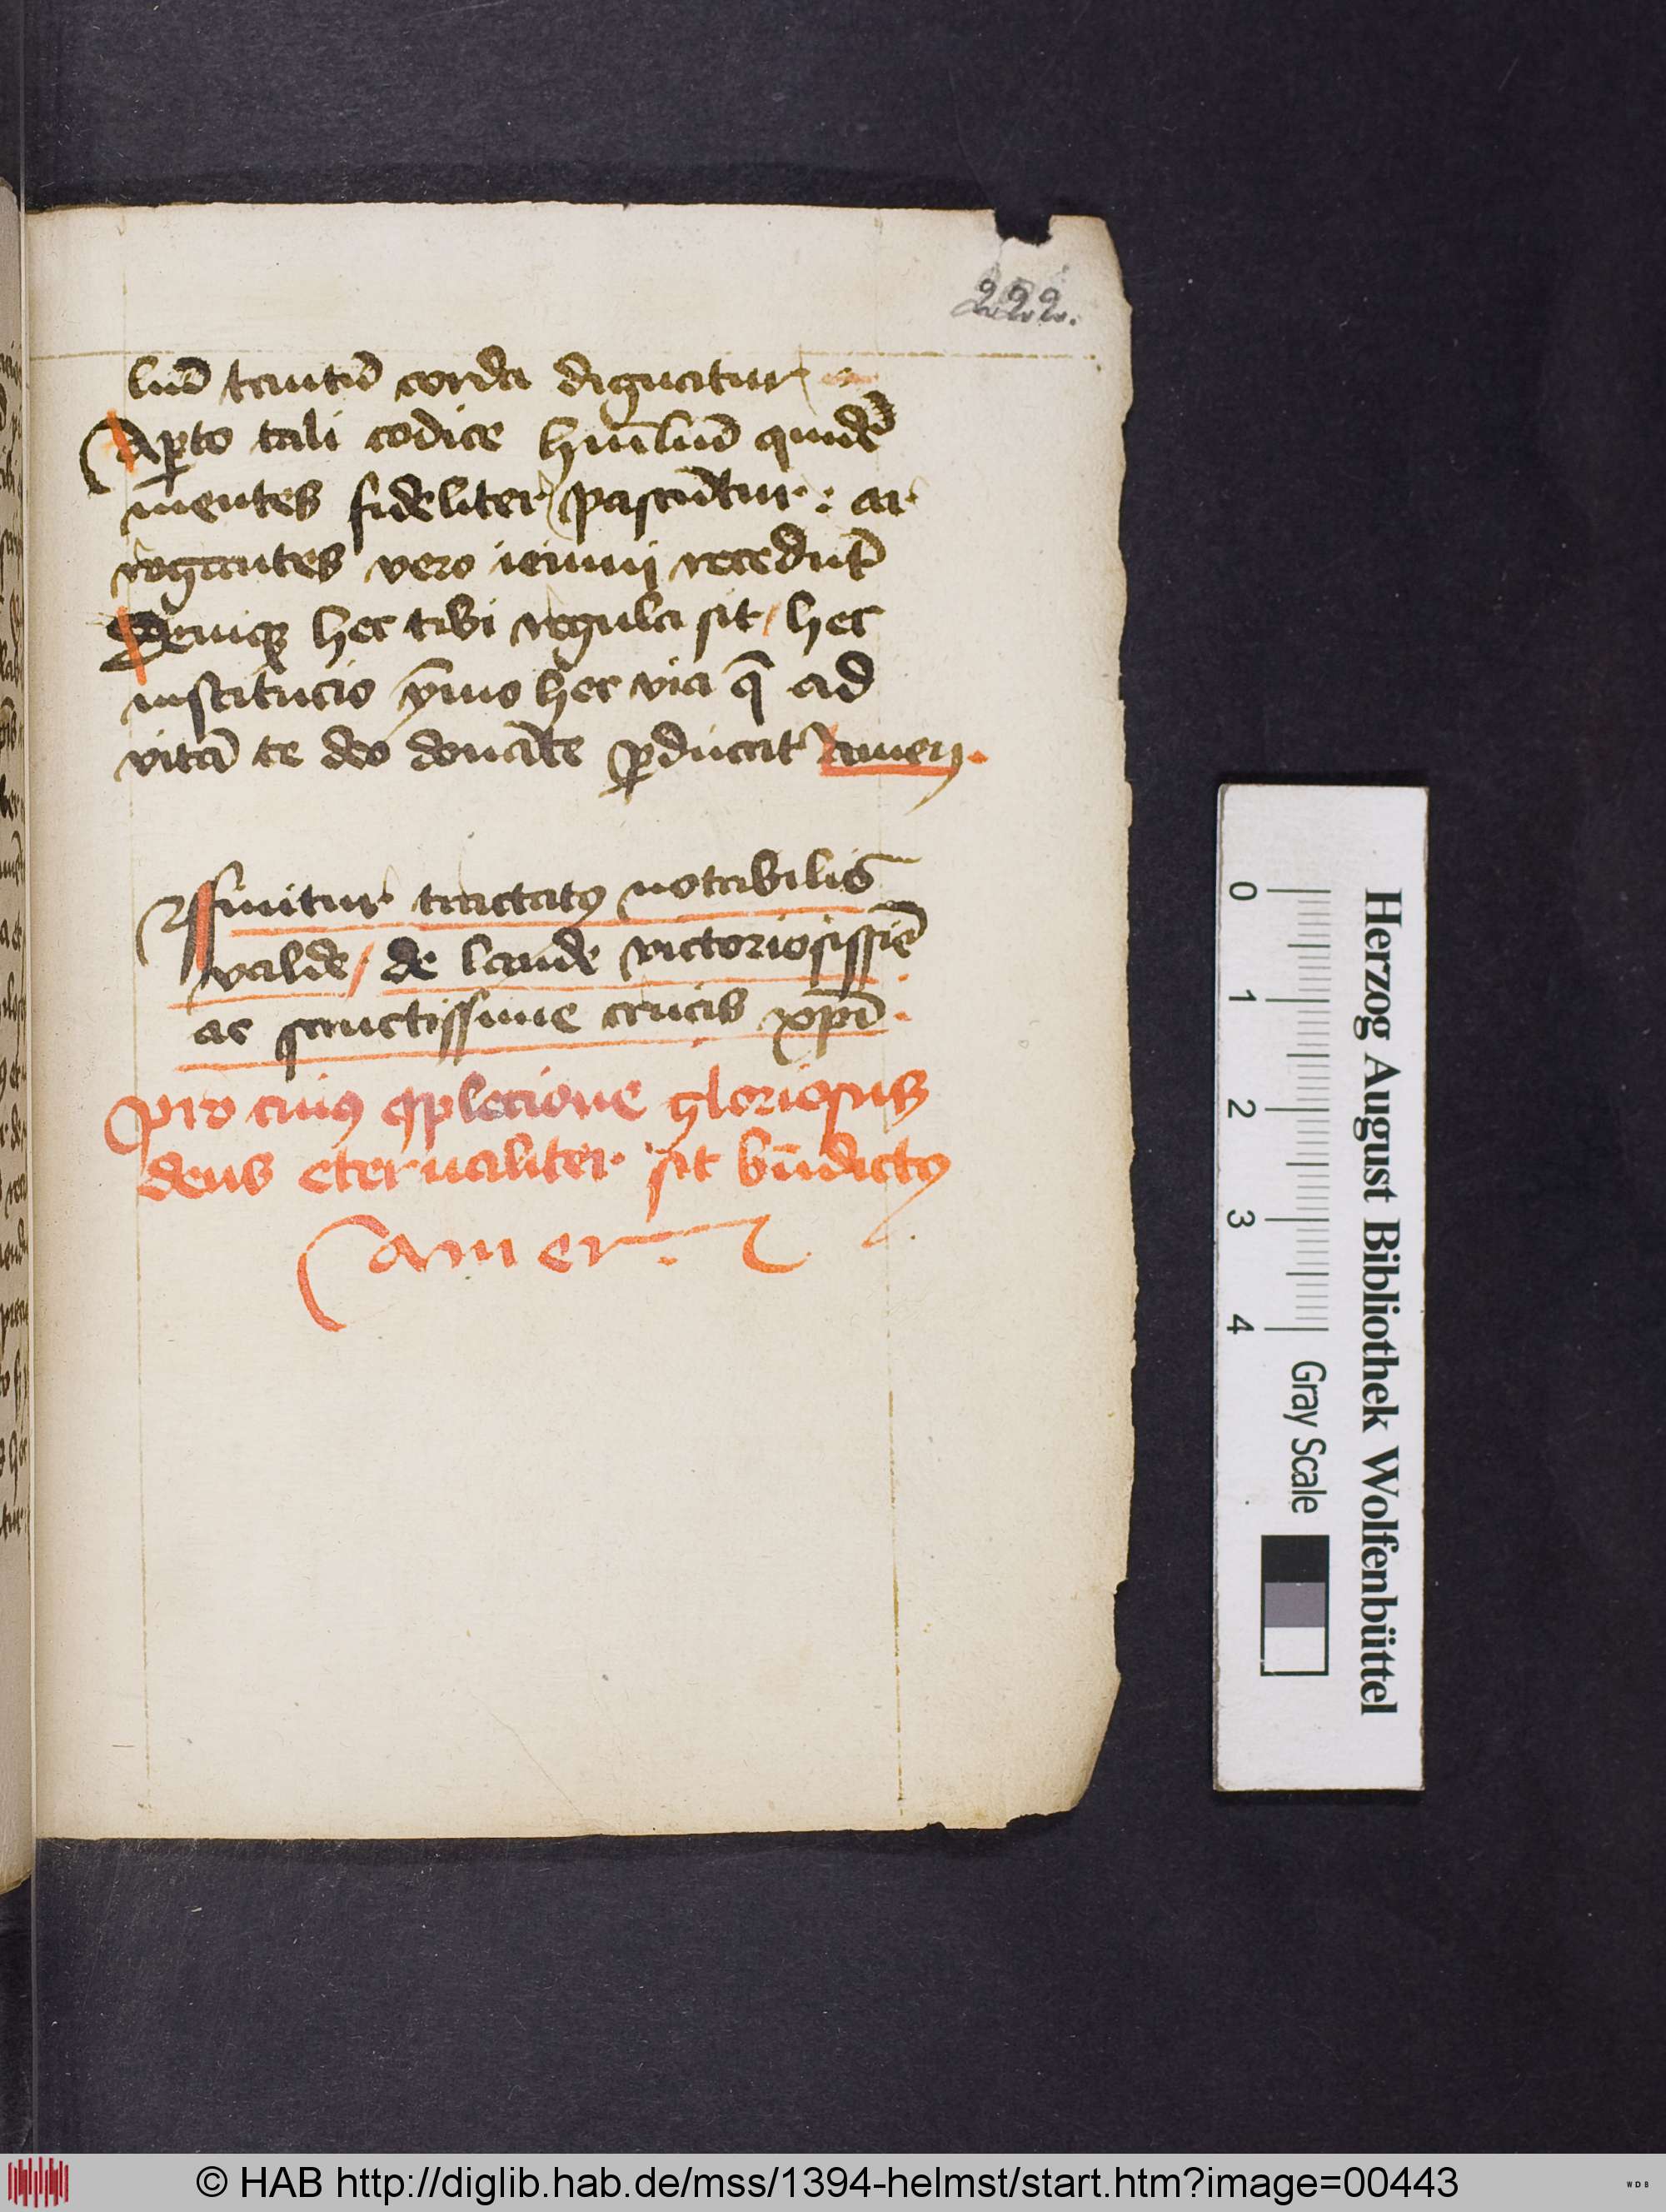 222.
liu̅ tantu̅ corda dignatur
Aꝑto tali codice hu̅iliu̅ quide̅
mentes fideliter pascu̅tur : ar
rogantes vero ieiunij recedu̅t
Deniqꝫ hec tibi regula sit / hec
institucio ȳmo hec via q̅ ad
vita̅ te deo dona̅te ꝑducat Amen.
Finitur tractatꝰ notabilis
valde / de laude victoriosissi̅e
ac sanctissime crucis xp̅i.
Pro cuiꝰ ꝯplecione gloriosus
deus eternaliter sit bn̅dictꝰ
Amen.
Herzog August Bibliothek Wolfenbüttel
0 1 2 3 4 Gray Scale
© HAB http://diglib.hab.de/mss/1394-helmst/start.htm?image=00443
WDB